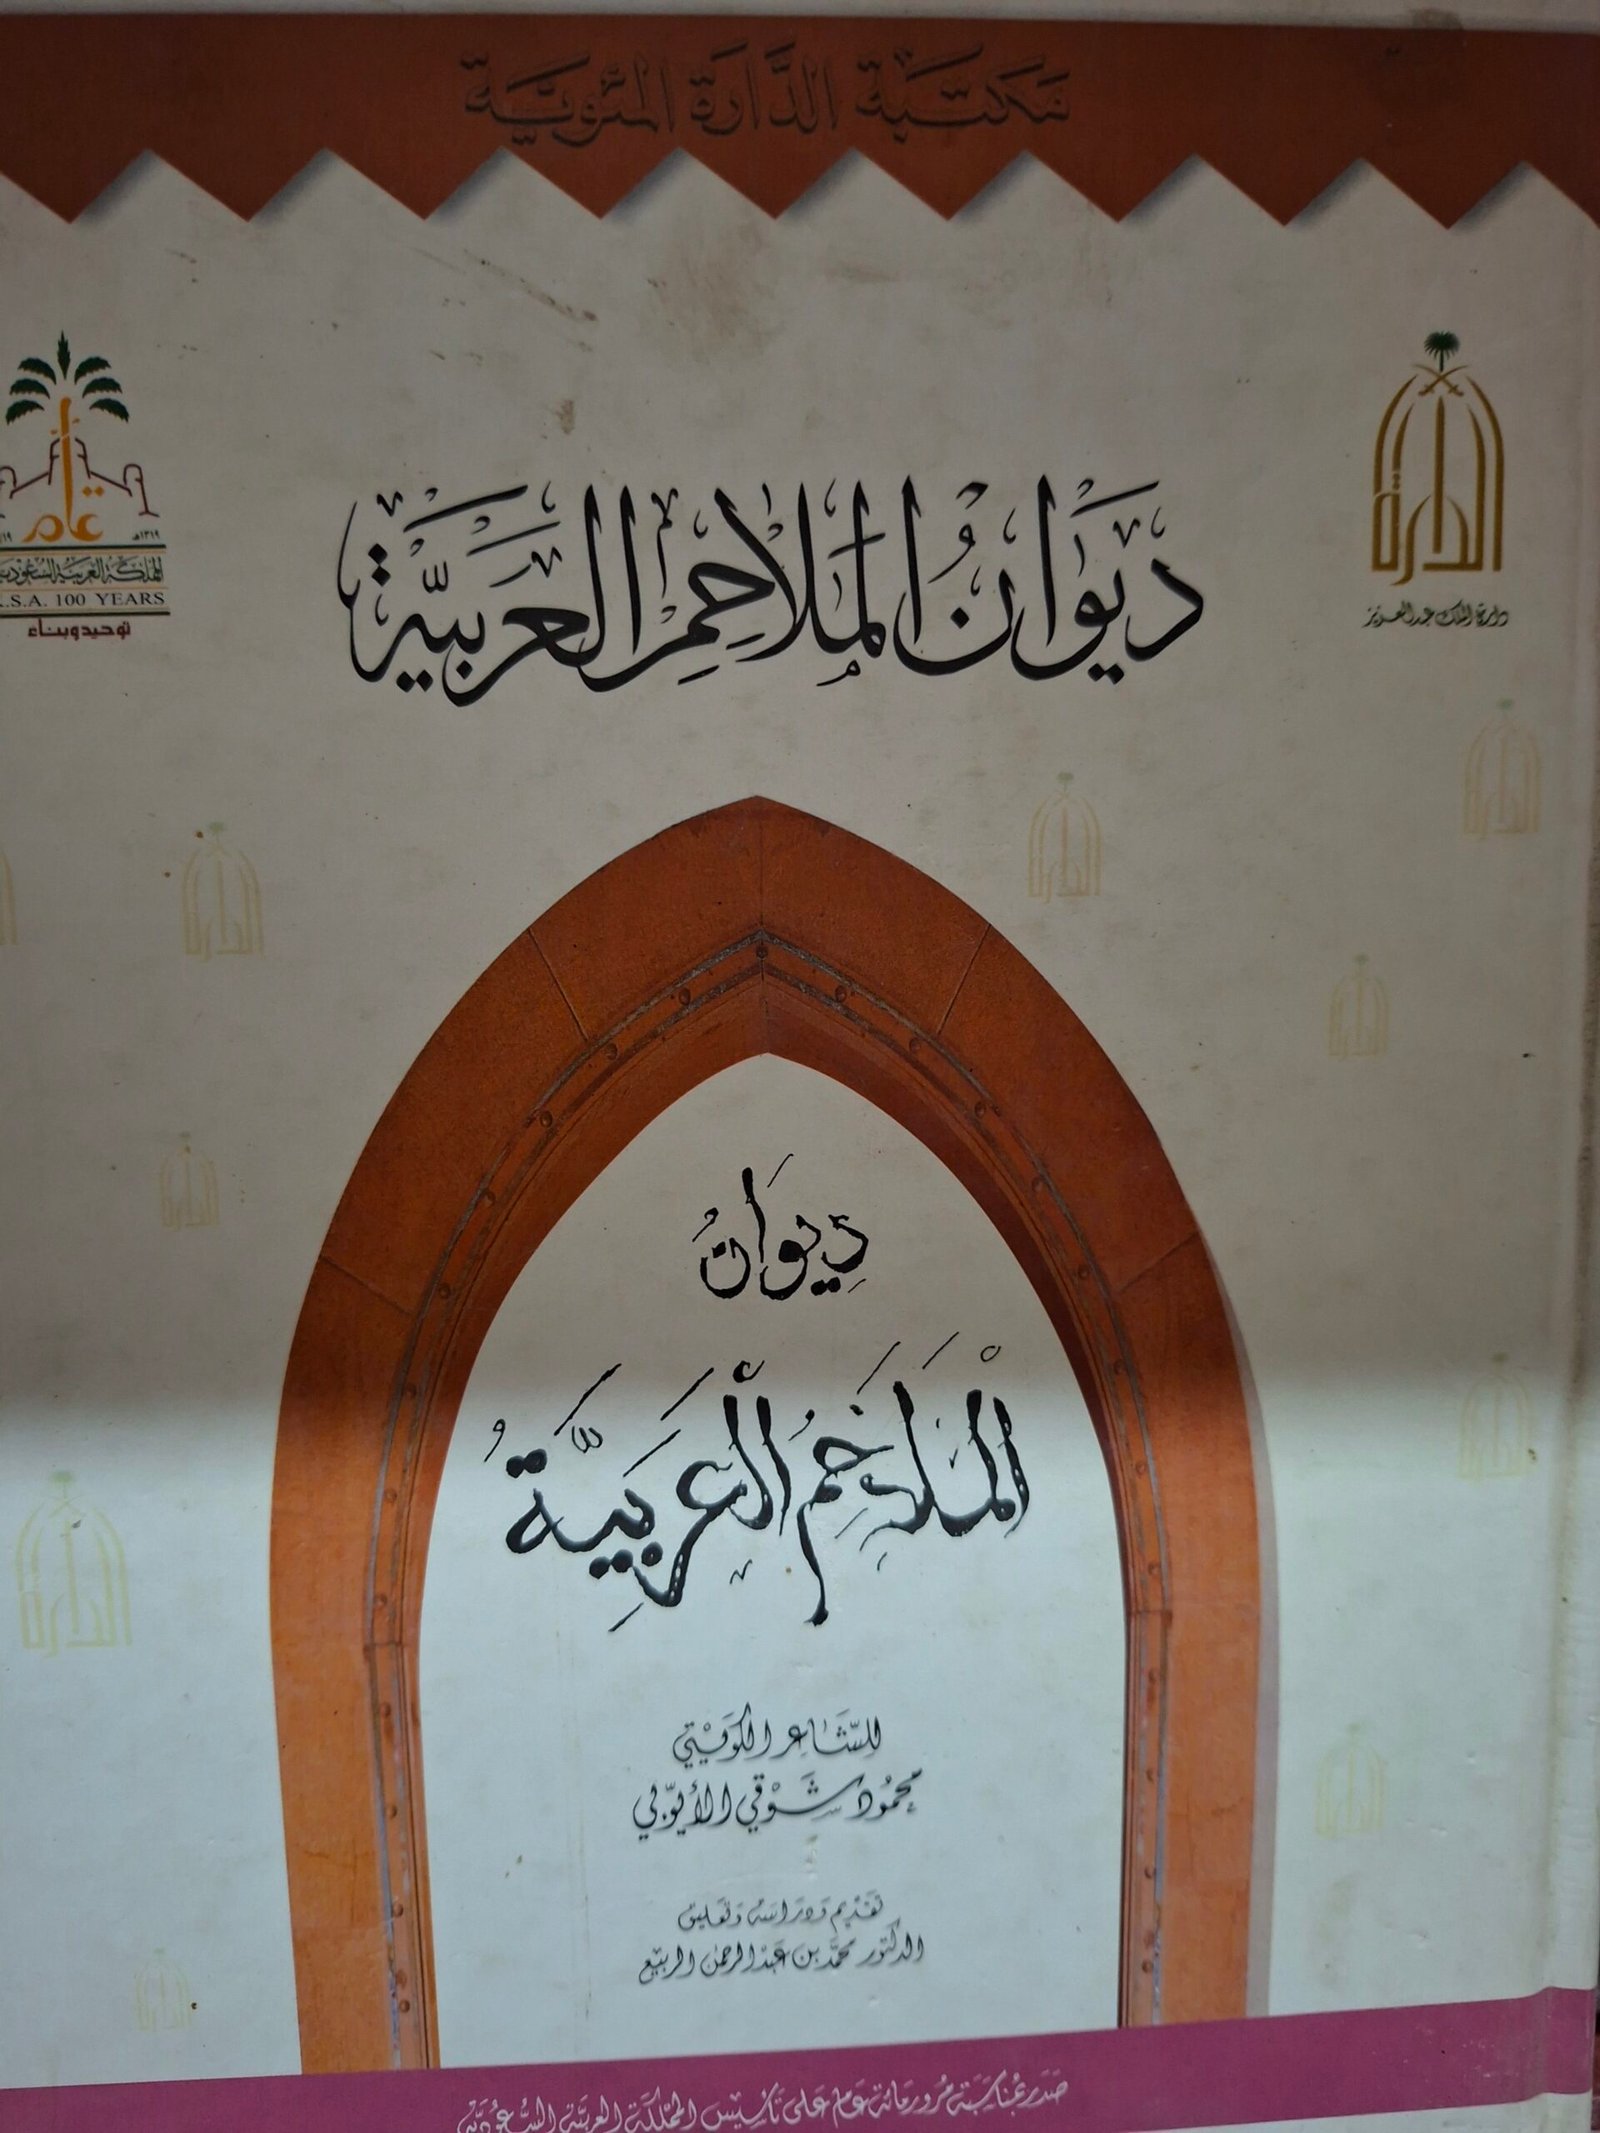 مكتبة الدارة المئوية
الدارة
دارة الملك عبدالعزيز
١٣١٩هـ
مائة عام
المملكة العربية السعودية
K.S.A. 100 YEARS
توحيد وبناء
ديوان الملاحم العربية
ديوان
الملاحم العربية
للشاعر الكويتي
محمود شوقي الأيوبي
تقديم ودراسة وتعليق
الدكتور محمد بن عبدالرحمن الربيع
صدر بمناسبة مرور مائة عام على تأسيس المملكة العربية السعودية